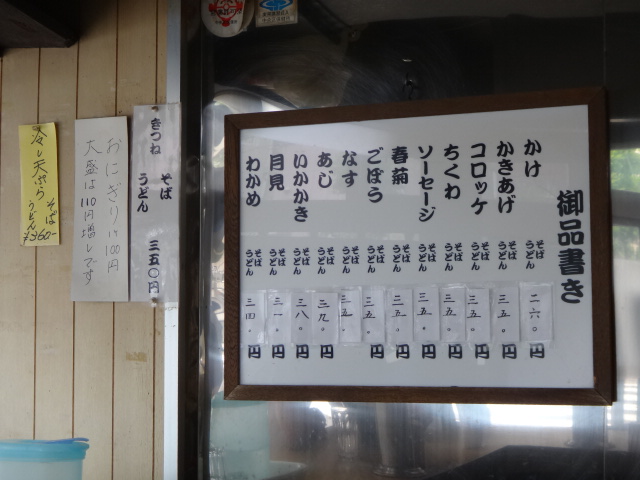 御品書き
かけ そば うどん 二六〇円
かきあげ そば うどん 三五〇円
コロッケ そば うどん 三五〇円
ちくわ そば うどん 三五〇円
ソーセージ そば うどん 三五〇円
春菊 そば うどん 三五〇円
ごぼう そば うどん 三五〇円
なす そば うどん 三五〇
あじ そば うどん 三九〇円
いかかき そば うどん 三八〇円
月見 そば うどん 三一〇円
わかめ そば うどん 三四〇円
きつね そば うどん 三五〇円
おにぎり1ケ100円
大盛は110円増しです
冷し天ぷら そば うどん ¥360-